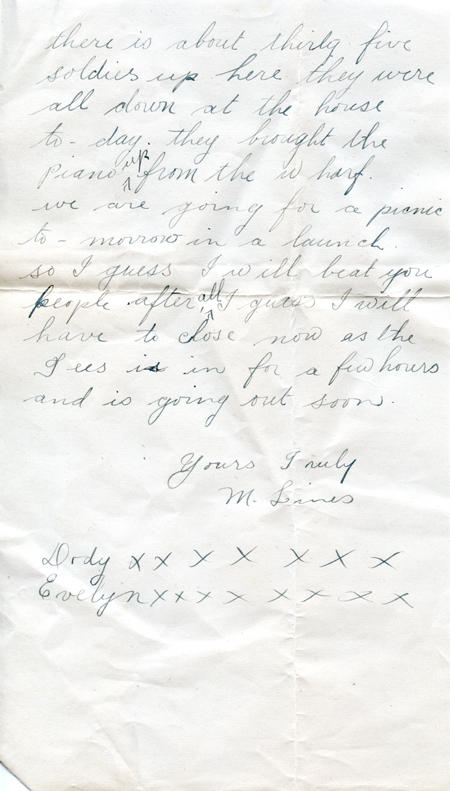 there is about thirty five
soldies up here they were
all down at the house
to-day. they brought the
piano up from the wharf.
we are going for a picnic
to-morrow in a launch.
so I guess I will beat you
people after all I guess I will
have to close now as the
Tees is in for a few hours
and is going out soon.
Yours Truly
M. Lines
Dody x x x x x x x
Evelyn x x x x x x x x